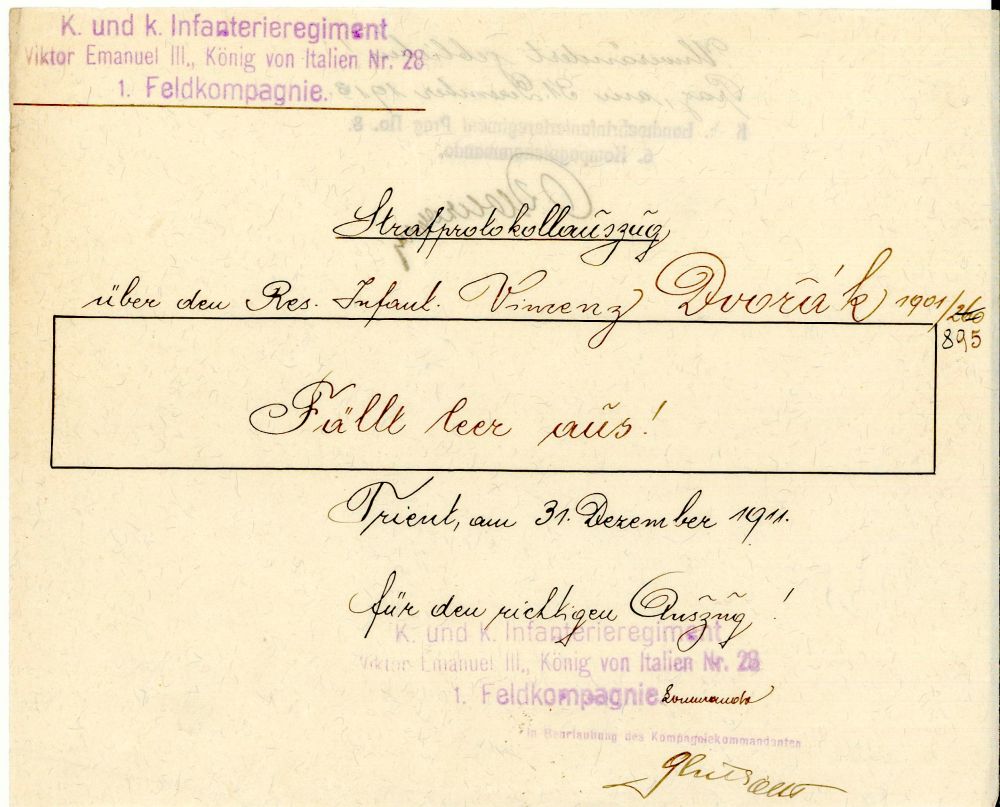 K. und k. Infanterieregiment
Viktor Emanuel III., König von Italien Nr. 28
1. Feldkompagnie.
Unverändert geblieben
Prag, am 31. Dezember 1913.
K. k. Landwehrinfanterieregiment Prag No. 8.
6. Kompagniekommando.
Strafprotokollauszug
über den Res. Infant. Vinzenz Dvořák 1901/260
895
Fällt leer aus!
Trient, am 31. Dezember 1911.
für den richtigen Auszug!
K. und k. Infanterieregiment
Viktor Emanuel III., König von Italien Nr. 28
1. Feldkompagnie. Kommando
In Beurlaubung des Kompagniekommandanten